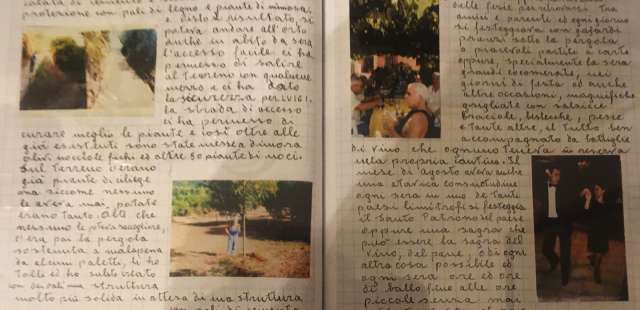 colata di cemento e
protezione con pali di legno e piante di mimosa
e visto il risultato, si
poteva andare all'orto
anche in abito da sera
l'accesso facile ci ha
permesso di salire
al terreno con qualunque
mezzo e ci ha dato
la sicurezza per LUIGI.
la strada di accesso
ci ha permesso di
curare meglio le piante e così oltre alle
già esistenti sono state messe a dimora
olivi, nocciole fichi ed altre 50 piante di noci.
Sul terreno c'erano
già piante di ciliege
ma siccome nessuno
le aveva mai potate
erano tanto alte che
nessuno le poteva raccogliere,
c'era poi la pergola
sostenuta a malapena
da alcuni paletti, li ho
tolti ed ho subito creato
con dei pali una struttura
molto più solida in attesa di una struttura
con pali di cemento
delle ferie per ritrovarsi tra
amici e parenti ed ogni giorno
si festeggiava con gagliardi
pranzi sotto la pergola
o piacevoli partite a carte
oppure, specialmente la sera
grandi cocomerate, nei
giorni di festa od anche
altre occasioni, magnifiche
grigliate con salsicce
braciole, bistecche, pesce
e tante altre, il tutto ben
accompagnato da bottiglie
di vino che ognuno teneva in riserva
nella propria cantina. Il
mese di agosto aveva anche
una atavica consuetudine
ogni sera in uno dei tanti
paesi limitrofi si festeggia
il Santo Patrono del paese
oppure una sagra che
può essere la sagra del
vino, del pane, o di ogni
altra cosa possibile ed
ogni sera ore ed ore
di ballo fino alle ore
piccole senza mai